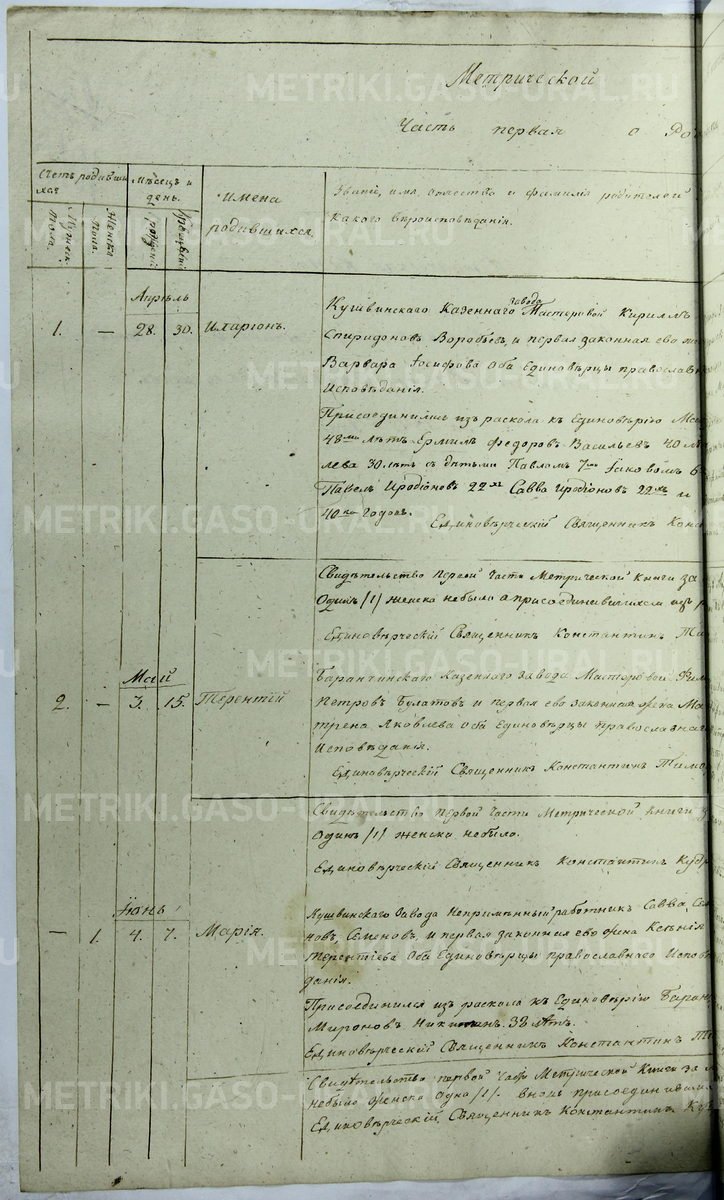 Метрической
Часть первая о Ро
Счетъ родивши
хся
Мѣсяцъ и
день.
Имена
родившихся.
Званіе, имя, отчество и фамилія родителей
какого вѣроисповѣданія.
Мужеск.
Пола.
Женска
Пола.
рожденія
крещенія
Апрѣль
1. — 28. 30. Иларіонъ.
Кушвинскаго Казеннаго завода Мастеровой Кириллъ
Спиридоновъ Воробьевъ, и первая законная его же
Варвара Іосифова оба Единовѣрцы православн
Исповѣданія.
Присоединились изъ раскола къ Единовѣрію
48ми лѣтъ Ермилъ Федоровъ Васильевъ 40
лева 30 лѣтъ съ дѣтьми Павломъ 7ми Іаковомъ 6
Павелъ Иродіоновъ 22хъ Савва Иродіоновъ 22хъ и
40ка годовъ.
Единовѣрческій Священникъ Конс
Свидѣтельство Первой Части Метрической Книги за
Одинъ /1/ женска небыло а присоединившихся изъ р
Единовѣрческій Священникъ Константинъ
Май
2. — 3. 15. Терентій
Баранчинскаго Казеннаго завода Мастеровой
Петровъ Булатовъ и первая его законная жена Ма
трена Яковлева оба Единовѣрцы православнаго
Исповѣданія.
Единовѣрческій Священникъ Константинъ
Свидѣтельство первой Части Метрической Книги з
Одинъ /1/ женска небыло.
Единовѣрческій Священникъ Константинъ
Іюнь
— 1. 4. 7. Марія.
Кушвинскаго Завода Непремѣнный работникъ Савва Сем
новъ, Семеновъ, и первая законная его жена Ксенія
Терентіева оба Единовѣрцы православнаго Испов
данія.
Присоединился изъ раскола къ Единовѣрію Баран
Мироновъ Никитинъ. 32 лѣтъ.
Единовѣрческій Священникъ Константинъ
Свидѣтельство первой Части Метрической Книги за
небыло женска Одна /1/. вновь присоединивши
Единовѣрческій, Священникъ Константинъ
METRIKI.GASO-URAL.RU